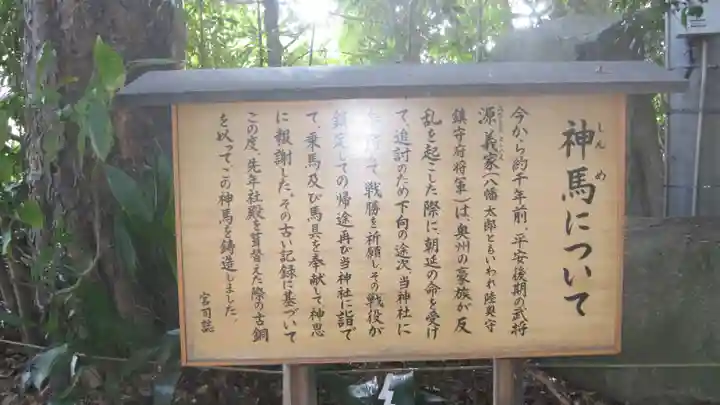 神馬について
しんめ
今から約千年前、平安後期の武将
源義家(八幡太郎ともいわれ陸奥守
鎮守府将軍)は、奥州の豪族が反
乱を起こした際に、朝廷の命を受け
て、追討のため下向の途次、当神社に
て戦勝を祈願し、その戦役が
鎮定しての帰途再び当神社に詣で
て、乗馬及び馬具を奉献して神恩
に報謝した。その古い記録に基づいて
この度、先年社殿を葺替えた際の古銅
を以ってこの神馬を鋳造しました。
宮司誌